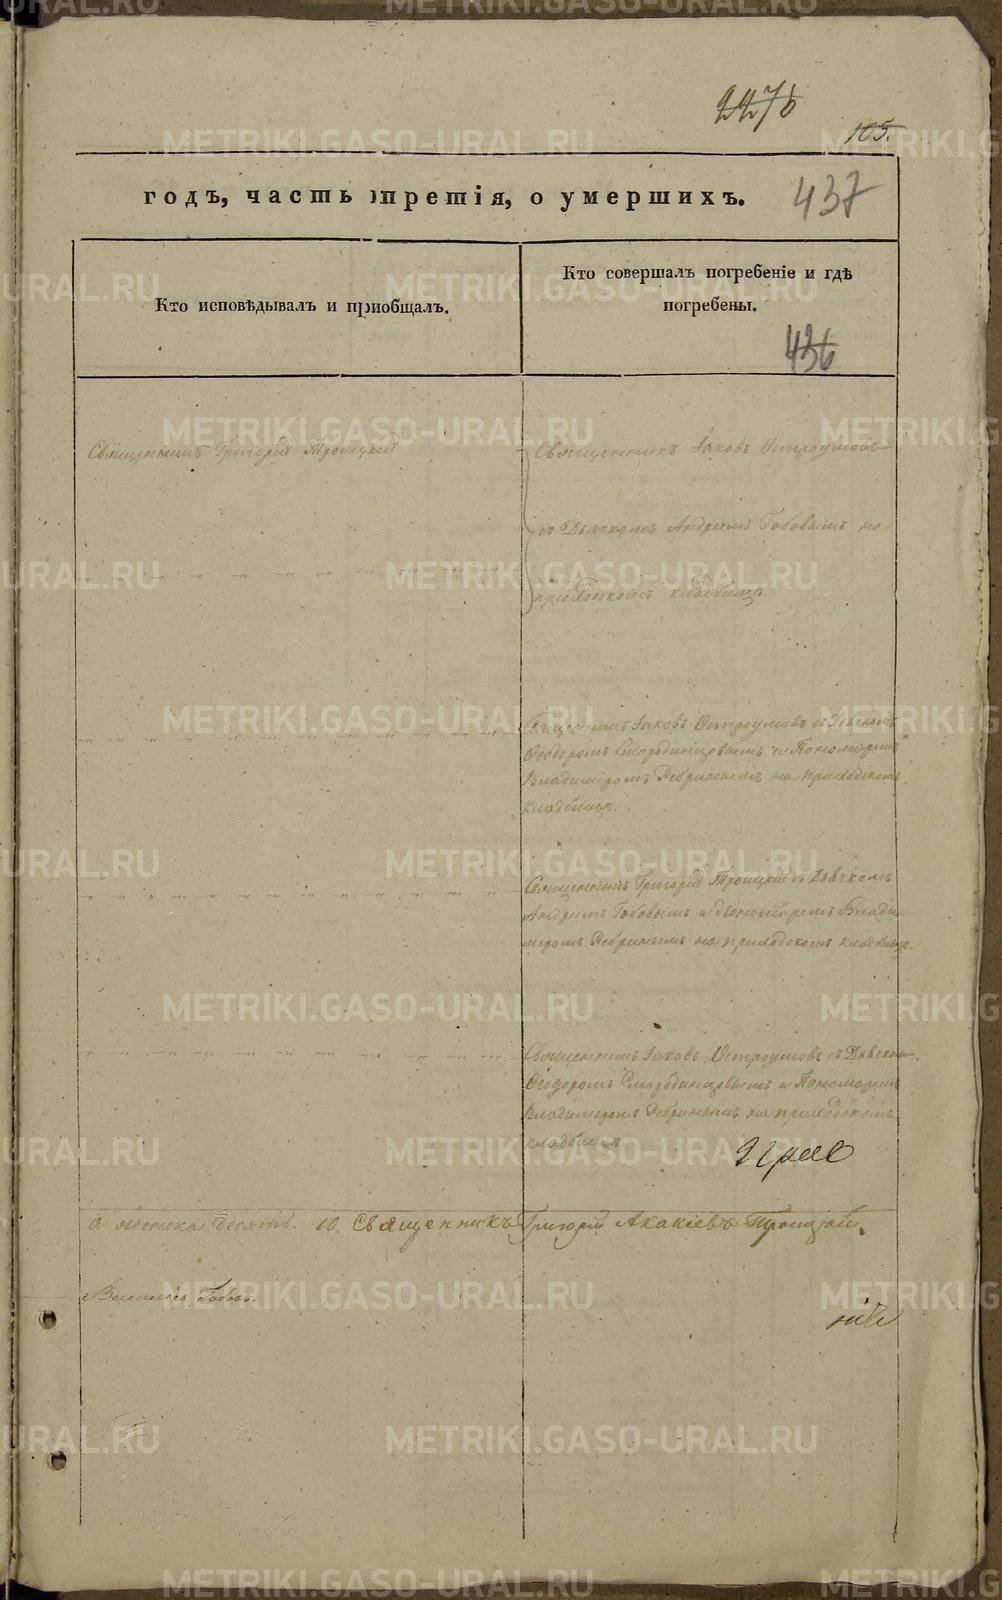 2276
105.
годъ, часть третія, о умершихъ.
437
Кто исповѣдывалъ и пріобщалъ.
Кто совершалъ погребеніе и гдѣ
погребены.
436
Священникъ Григорій Троицкій
Священникъ Іаковъ Остроумовъ
съ Дьячкомъ Андреемъ Бобовымъ на
приходскомъ кладбищѣ.
Священникъ Іаковъ Остроумовъ съ Дьячкомъ
Ѳеодоромъ Смородинцовымъ и Пономаремъ
Владиміромъ на приходскомъ
кладбищѣ.
Священникъ Григорій Троицкій съ Дьячкомъ
Андреемъ Бобовымъ и Пономаремъ Влади-
міромъ на приходскомъ кладбищѣ.
Священникъ Іаковъ Остроумовъ съ Дьячком.
Ѳеодоромъ Смородинцовымъ и Пономаремъ
Владиміромъ на приходскомъ
кладбищѣ
десять. 10. Священникъ Григорій Акакіевъ Троицкій.
Бобовъ.
METRIKI.GASO-URAL.RU